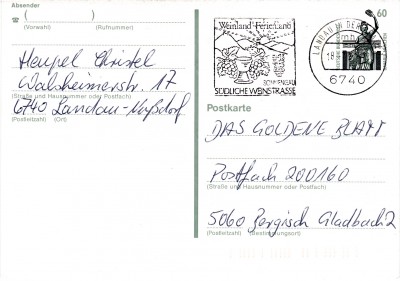 Absender
☎ (                    )
(Vorwahl) (Rufnummer)
Heupel Christel
Walsheimerstr. 17
(Straße und Hausnummer oder Postfach)
6740 Landau-Nußdorf
(Postleitzahl) (Ort)
Weinland-Ferienland
SÜDLICHE WEINSTRASSE
LANDAU IN DER
18.
6740
60
Postkarte
DAS GOLDENE BLATT
Postfach 200160
(Straße und Hausnummer oder Postfach)
5060 Bergisch Gladbach 2
(Postleitzahl) (Bestimmungsort)